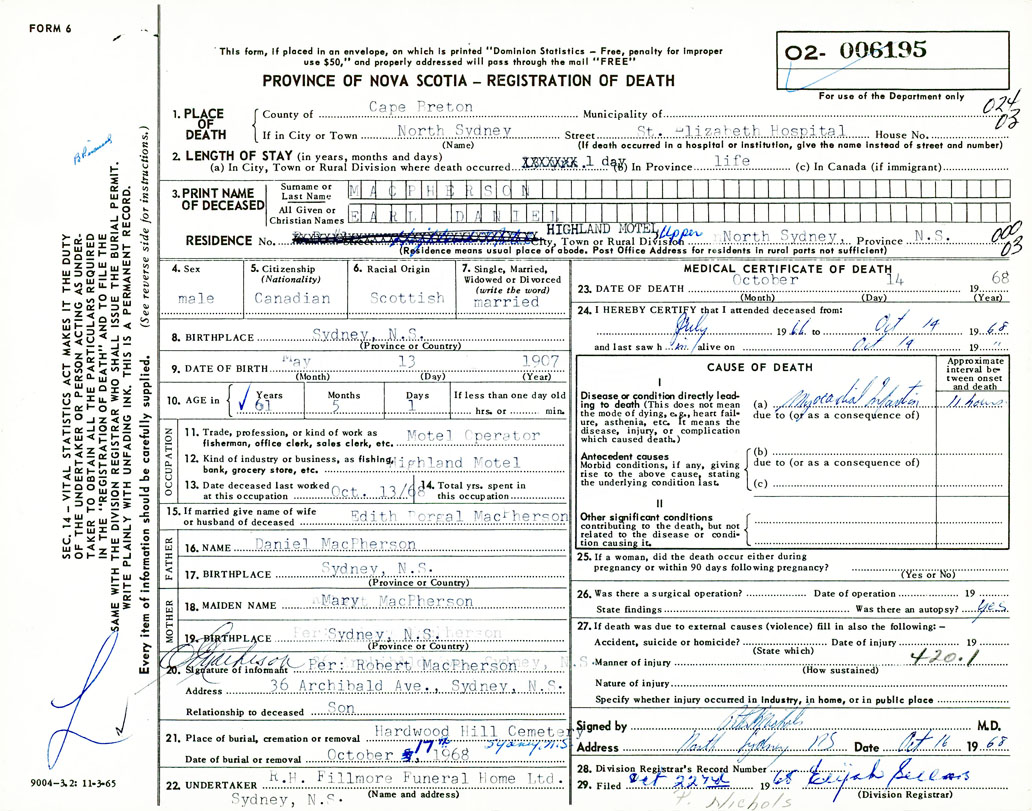 FORM 6
This form, if placed in an envelope, on which is printed "Dominion Statistics – Free, penalty for improper
use $50," and properly addressed will pass through the mail "FREE"
O2- 006195
For use of the Department only
PROVINCE OF NOVA SCOTIA – REGISTRATION OF DEATH
024
03
1. PLACE OF DEATH
County of Cape Breton Municipality of
If in City or Town North Sydney Street St. Elizabeth Hospital House No.
(Name) (If death occurred in a hospital or institution, give the name instead of street and number)
2. LENGTH OF STAY (in years, months and days)
(a) In City, Town or Rural Division where death occurred XXXXXXX 1 day (b) In Province life (c) In Canada (if immigrant)
3. PRINT NAME OF DECEASED
Surname or Last Name MACPHERSON
All Given or Christian Names EARL DANIEL
HIGHLAND MOTEL Upper
RESIDENCE No. City, Town or Rural Division North Sydney, Province N.S.
000
03
(Residence means usual place of abode. Post Office Address for residents in rural parts not sufficient)
4. Sex
male
5. Citizenship
(Nationality)
Canadian
6. Racial Origin
Scottish
7. Single, Married,
Widowed or Divorced
(write the word)
married
8. BIRTHPLACE Sydney, N.S.
(Province or Country)
9. DATE OF BIRTH May 13 1907
(Month) (Day) (Year)
10. AGE in Years 61 Months 5 Days 1 If less than one day old
hrs. or min.
OCCUPATION
11. Trade, profession, or kind of work as
fisherman, office clerk, sales clerk, etc. Motel Operator
12. Kind of industry or business, as fishing,
bank, grocery store, etc. Highland Motel
13. Date deceased last worked
at this occupation Oct. 13/68
14. Total yrs. spent in
this occupation
15. If married give name of wife
or husband of deceased Edith MacPherson
FATHER
16. NAME Daniel MacPherson
17. BIRTHPLACE Sydney, N.S.
(Province or Country)
MOTHER
18. MAIDEN NAME Mary MacPherson
19. BIRTHPLACE Sydney, N.S.
(Province or Country)
20. Signature of informant Per: Robert MacPherson
Address 36 Archibald Ave., Sydney, N.S.
Relationship to deceased Son
21. Place of burial, cremation or removal Hardwood Hill Cemetery
Sydney, N.S.
Date of burial or removal October 17th 1968
22. UNDERTAKER R.H. Fillmore Funeral Home Ltd.
Sydney, N.S. (Name and address)
MEDICAL CERTIFICATE OF DEATH
23. DATE OF DEATH October 14 1968
(Month) (Day) (Year)
24. I HEREBY CERTIFY that I attended deceased from:
July 1966 to Oct 14 1968
and last saw him alive on Oct 14 19 "
CAUSE OF DEATH
Approximate
interval be-
tween onset
and death
I
Disease or condition directly lead-
ing to death (This does not mean
the mode of dying, e.g., heart fail-
ure, asthenia, etc. It means the
disease, injury, or complication
which caused death.)
(a) Myocardial Infarction 11 hours
due to (or as a consequence of)
Antecedent causes
Morbid conditions, if any, giving
rise to the above cause, stating
the underlying condition last.
(b)
due to (or as a consequence of)
(c)
II
Other significant conditions
contributing to the death, but not
related to the disease or condi-
tion causing it.
25. If a woman, did the death occur either during
pregnancy or within 90 days following pregnancy?
(Yes or No)
26. Was there a surgical operation? Date of operation 19
State findings Was there an autopsy? Yes
27. If death was due to external causes (violence) fill in also the following: –
Accident, suicide or homicide? Date of injury 19
(State which)
420.1
Manner of injury
(How sustained)
Nature of injury
Specify whether injury occurred in industry, in home, or in public place
Signed by M.D.
Address North Sydney NS Date Oct 16 1968
28. Division Registrar's Record Number
29. Filed Oct 22nd 1968 Elijah Sellars
(Division Registrar)
F. Nichols
SEC. 14 – VITAL STATISTICS ACT MAKES IT THE DUTY
OF THE UNDERTAKER OR PERSON ACTING AS UNDER-
TAKER TO OBTAIN ALL THE PARTICULARS REQUIRED
IN THE "REGISTRATION OF DEATH" AND TO FILE THE
SAME WITH THE DIVISION REGISTRAR WHO SHALL ISSUE THE BURIAL PERMIT.
WRITE PLAINLY WITH UNFADING INK. THIS IS A PERMANENT RECORD.
Every item of information should be carefully supplied. (See reverse side for instructions.)
9004–3.2: 11-3-65